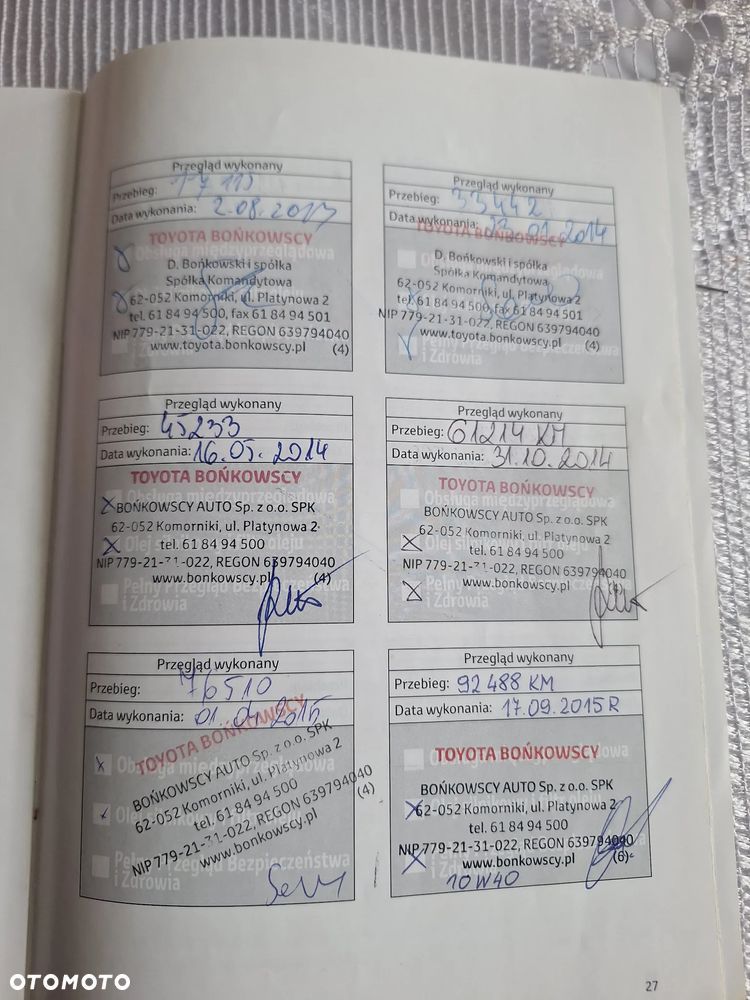 Przegląd wykonany
Przebieg:
Data wykonania: 2.08.2013
TOYOTA BOŃKOWSCY
Obsługa międzyprzeglądowa
D. Bońkowski i spółka
Spółka Komandytowa
62-052 Komorniki, ul. Platynowa 2
tel. 61 84 94 500, fax 61 84 94 501
NIP 779-21-31-022, REGON 639794040
www.toyota.bonkowscy.pl (4)
Przegląd wykonany
Przebieg: 33442
Data wykonania: 23.01.2014
TOYOTA BOŃKOWSCY
D. Bońkowski i spółka
Spółka Komandytowa
62-052 Komorniki, ul. Platynowa 2
tel. 61 84 94 500, fax 61 84 94 501
NIP 779-21-31-022, REGON 639794040
www.toyota.bonkowscy.pl (4)
Pełny Przegląd Bezpieczeństwa
i Zdrowia
Przegląd wykonany
Przebieg: 45233
Data wykonania: 16.05.2014
TOYOTA BOŃKOWSCY
Obsługa międzyprzeglądowa
BOŃKOWSCY AUTO Sp. z o.o. SPK
62-052 Komorniki, ul. Platynowa 2
tel. 61 84 94 500
NIP 779-21-31-022, REGON 639794040
www.bonkowscy.pl (4)
Pełny Przegląd Bezpieczeństwa
i Zdrowia
Przegląd wykonany
Przebieg: 61214 KM
Data wykonania: 31.10.2014
TOYOTA BOŃKOWSCY
Obsługa międzyprzeglądowa
BOŃKOWSCY AUTO Sp. z o.o. SPK
62-052 Komorniki, ul. Platynowa 2
tel. 61 84 94 500
NIP 779-21-31-022, REGON 639794040
www.bonkowscy.pl (4)
i Zdrowia
Przegląd wykonany
Przebieg: 76510
Data wykonania: 01.04.2015
TOYOTA BOŃKOWSCY
Obsługa międzyprzeglądowa
BOŃKOWSCY AUTO Sp. z o.o. SPK
62-052 Komorniki, ul. Platynowa 2
tel. 61 84 94 500
NIP 779-21-31-022, REGON 639794040
(4)
www.bonkowscy.pl
Pełny Przegląd Bezpieczeństwa
i Zdrowia
Przegląd wykonany
Przebieg: 92 488 KM
Data wykonania: 17.09.2015 R
TOYOTA BOŃKOWSCY
BOŃKOWSCY AUTO Sp. z o.o. SPK
62-052 Komorniki, ul. Platynowa 2
tel. 61 84 94 500
NIP 779-21-31-022, REGON 639794040
www.bonkowscy.pl (6)
10W40
27
OTOMOTO